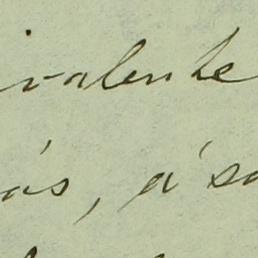 ivalente
ás, á sa